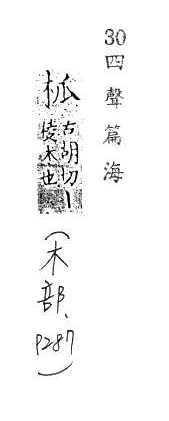 30四聲篇海
柧古胡切丨棱木也(木部、P287)